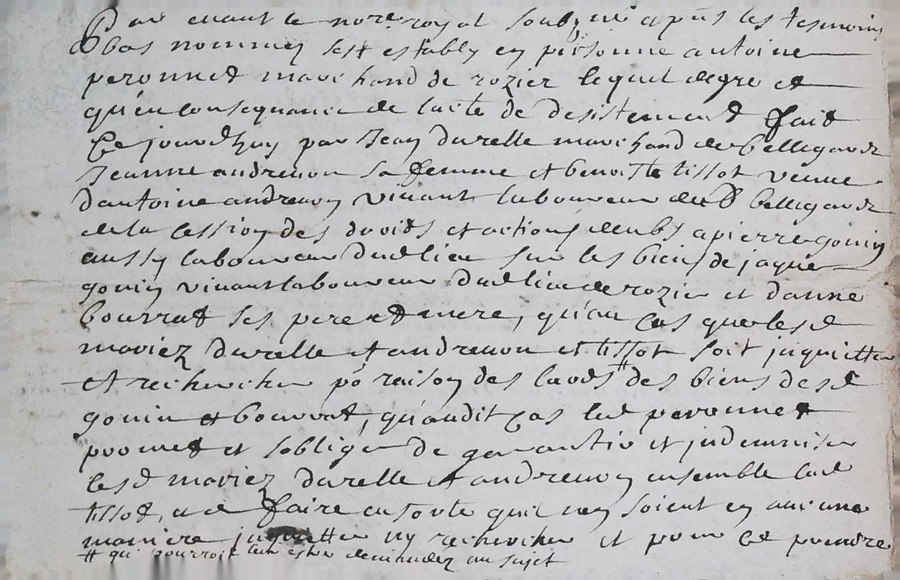 Par devant le no.re royal soubz.né apñs les tesmoins
bas nommez s'est estably en personne antoine
peronnet marchand de rozier lequel de gre et
qu'en consequance de lacte de desistement fait
ce jourdhuy par Jean durelle marchand de bellegarde
Jeanne andrenon sa femme et benoitte tissot veuve
dantoine andrenon vivant laboureur dud bellegarde
de la cession des droits et actions deubs a pierre gonin
aussy laboureur dud lieu sur les biens de jaque
gonin vivant laboureur dud lieu de rozier et danne
bourrat ses pere et mere, qu'au cas que lesd
mariez durelle et andrenon et tissot soit inquietter
et rechercher pr raison des laods # des biens desd
gonin et bourrat, qu'audit cas led peronnet
promet et soblige de garantir et indemniser
lesd mariez durelle et andrenon ensemble lad
tissot, et de faire en sorte qui n'en soient en aucune
maniere inquietter ny rechercher et pour ce prendre
# qui pourroit estre demandez au sujet